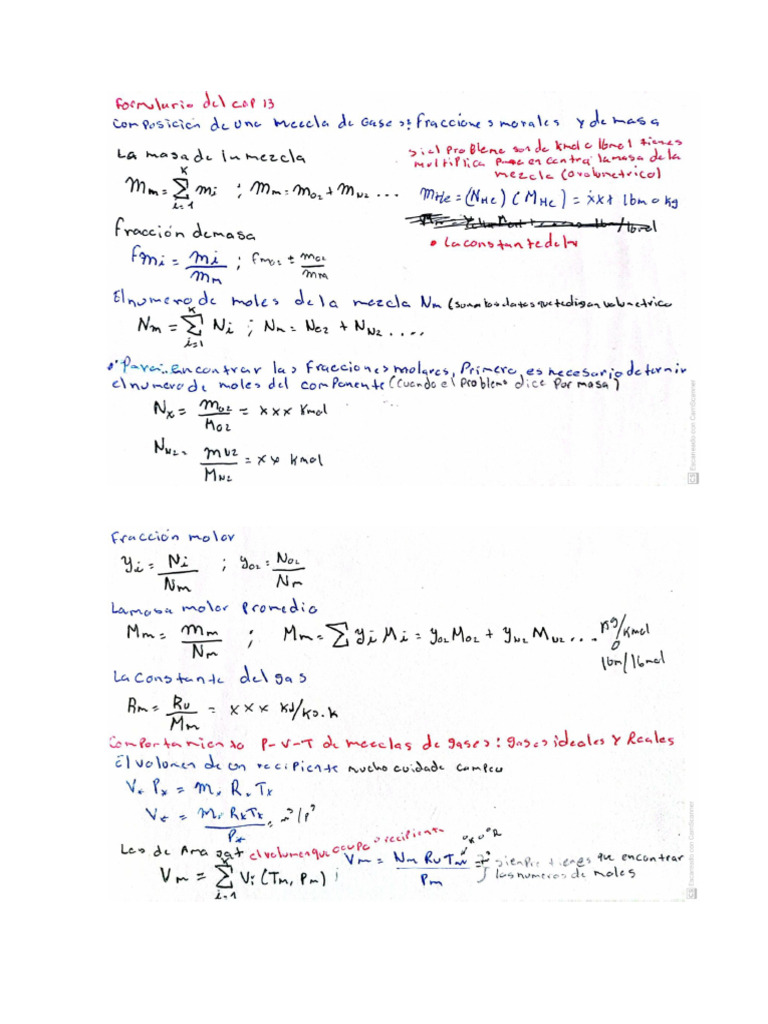 Formulario del cap 13
Composición de una mezcla de Gases: fracciones morales y de masa
La masa de la mezcla
Mm = Σ mi ; Mm = mO2 + MN2 ...
K
i=1
si el probleme son de kmol o lbmol tienes
multiplica para encontra la masa de la
mezcla (o volumetrico)
mHe = (NHe) (MHe) = xxx lbm o kg
• La constante de la
fracción de masa
fmi = mi / mm ; fmO2 = mO2 / mm
El numero de moles de la mezcla Nm (suman los datos que te digan volumetrico
Nm = Σ Ni ; Nm = NO2 + NN2 ....
K
i=1
• Para encontrar las fracciones molares, Primero, es necesario determir
el numero de moles del componente (cuando el problema dice por masa)
Nx = mO2 / MO2 = xxx kmol
NN2 = mN2 / MN2 = xx kmol
Escaneado con CamScanner
CS
Fracción molar
yi = Ni / Nm ; yO2 = NO2 / Nm
La masa molar promedio
Mm = mm / Nm ; Mm = Σ yi Mi = yO2 MO2 + yN2 MN2 ... kg/kmol
o
lbm/lbmol
La constante del gas
Rm = Ru / Mm = xxx kJ/kg.k
Comportamiento P-V-T de mezclas de gases: gases ideales y Reales
El volumen de un recipiente mucho cuidado
Vx Px = m. R. Tx
Vx = m. Rx Tx / Px
Les de Amagat el volumen que ocupa o recipiente
°K o °R
Vm = Σ Vi (Tm, Pm) ;
K
i=1
Vm = Nm Ru Tm / Pm
siempre tienes que encontrar
los numeros de moles
Escaneado con CamScanner
CS